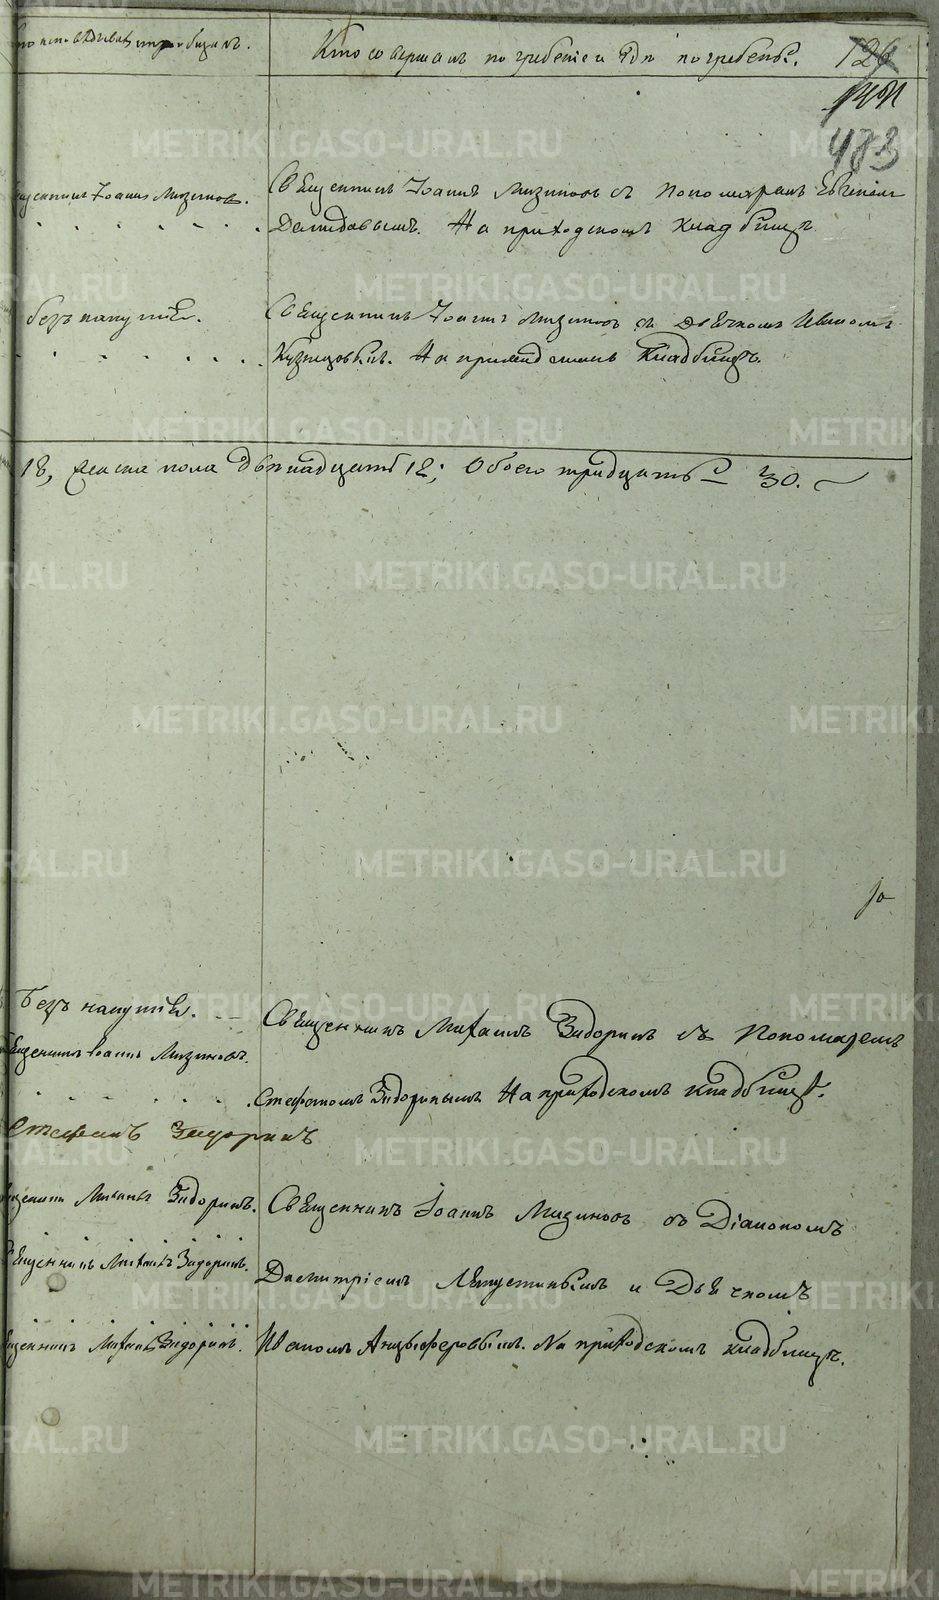 Кто исповѣдывалъ и пріобщалъ.
Кто совершалъ погребеніе и гдѣ погребены.
126
483
Священникъ Іоаннъ Мизиновъ.
Священникъ Іоаннъ Мизиновъ съ Пономаремъ Евгеніем
Демидовымъ. На приходскомъ кладбищѣ.
безъ напутія.
Священникъ Іоаннъ Мизиновъ съ Дьячкомъ Иваномъ
На приходскомъ Кладбищѣ.
18, женска пола двѣнадцать 12; Обоего тридцать 30.
Безъ напутія.
Священникъ Михаилъ Задоринъ съ Пономаремъ
Священникъ Іоаннъ Мизиновъ.
Стефаномъ Задоринымъ На приходскомъ кладбищѣ.
Стефанъ Задоринъ
Священникъ Михаилъ Задоринъ.
Священникъ Іоаннъ Мизиновъ съ Діакономъ
Священникъ Михаилъ Задоринъ.
Димитріемъ и Дьячкомъ
Священникъ Михаилъ Задоринъ.
Иваномъ Анцыферовымъ. На приходскомъ кладбищѣ.
METRIKI.GASO-URAL.RU